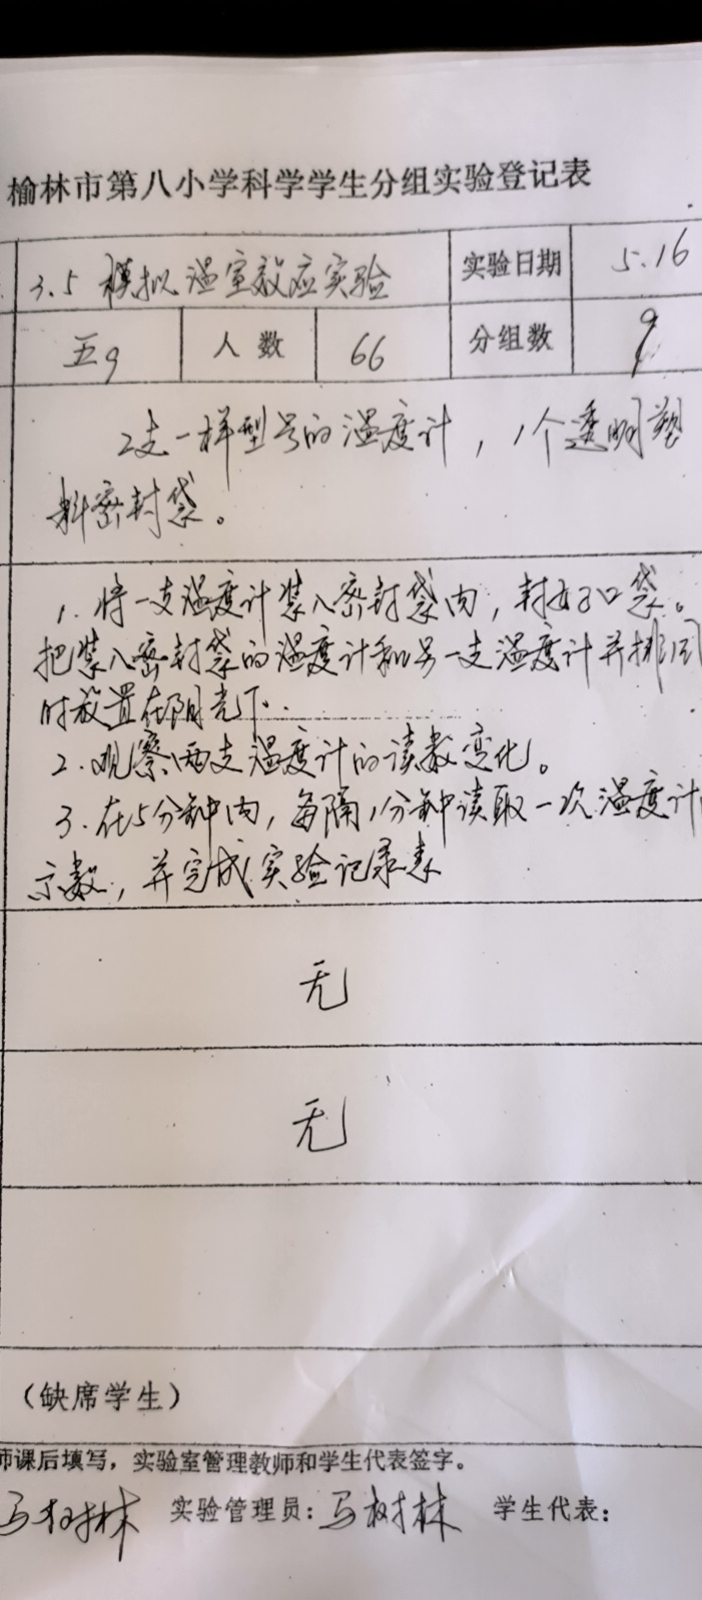 榆林市第八小学科学学生分组实验登记表
3.5 模拟温室效应实验 实验日期 5.16
五9 人数 66 分组数 9
2支一样型号的温度计，1个透明塑
料密封袋。
1. 将一支温度计装入密封袋内，封好口袋。
把装入密封袋的温度计和另一支温度计并排同
时放置在阳光下.
2. 观察两支温度计的读数变化。
3. 在5分钟内，每隔1分钟读取一次温度计
示数，并完成实验记录表
无
无
（缺席学生）
师课后填写，实验室管理教师和学生代表签字。
马树林 实验管理员：马树林 学生代表：